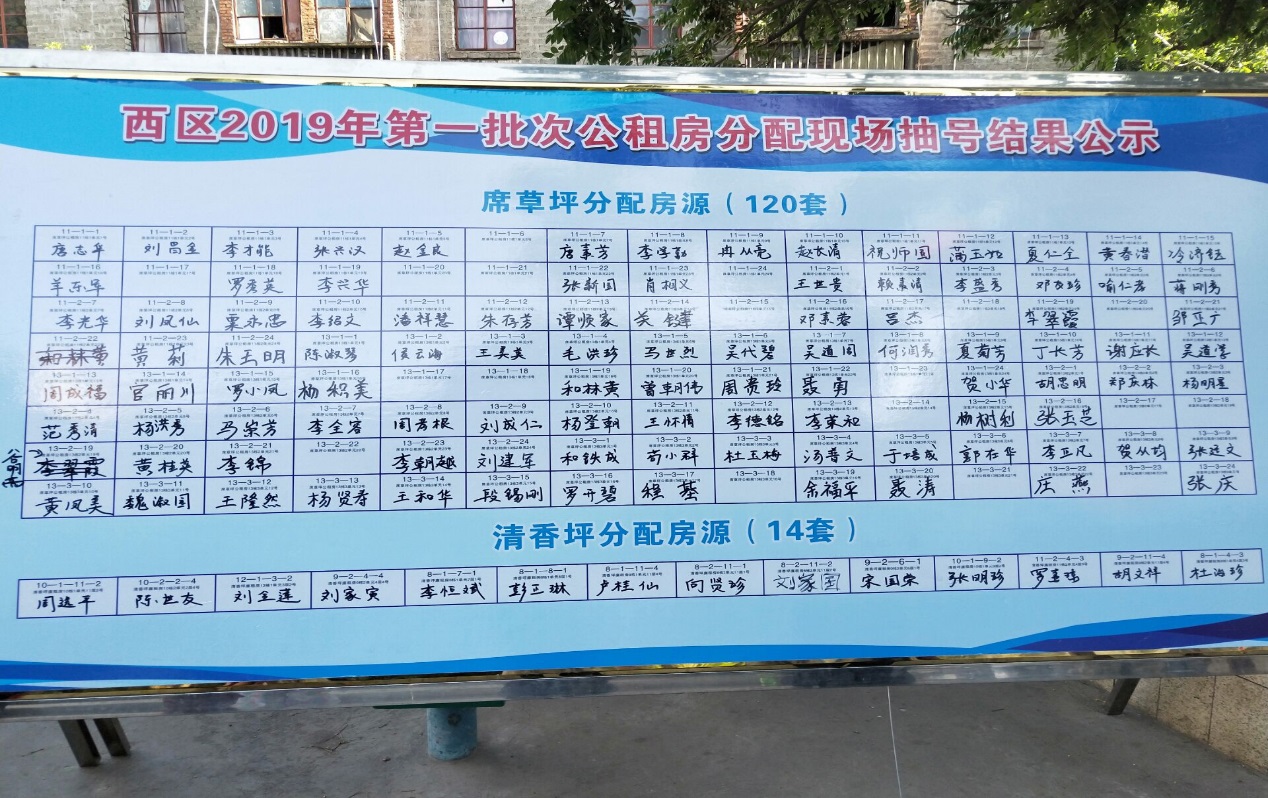 西区2019年第一批次公租房分配现场抽号结果公示
席草坪分配房源（120套）
11-1-1 11-1-2 11-1-3 11-1-4 11-1-5 11-1-6 11-1-7 11-1-8 11-1-9 11-1-10 11-1-11 11-1-12 11-1-13 11-1-14 11-1-15
唐志华 刘昌金 李才能 张兴汉 赵金良 唐素芳 李学勤 冉从亮 赵长清 祝师国 蒲玉 夏仁全 黄春潜 冷济
11-1-16 11-1-17 11-1-18 11-1-19 11-1-20 11-1-21 11-1-22 11-1-23 11-1-24 11-2-1 11-2-2 11-2-3 11-2-4 11-2-5 11-2-6
羊东华 罗虎英 李兴华 张新国 肖相义 王世贵 赖素清 李盈秀 邓友珍 喻仁君 蒋刚秀
11-2-7 11-2-8 11-2-9 11-2-10 11-2-11 11-2-12 11-2-13 11-2-14 11-2-15 11-2-16 11-2-17 11-2-18 11-2-19 11-2-20 11-2-21
李光华 刘凤仙 李绍文 潘祥慧 朱存芳 谭顺家 关 邓素蓉 吕杰 李翠霞 邹正
11-2-22 11-2-23 11-2-24 13-1-1 13-1-2 13-1-3 13-1-4 13-1-5 13-1-6 13-1-7 13-1-8 13-1-9 13-1-10 13-1-11 13-1-12
和林黄 黄莉 朱玉明 陈淑琴 侯云海 王昊英 毛洪珍 马世烈 吴代碧 吴道周 何润秀 夏菊芳 丁长芳 谢丘长 吴道学
13-1-13 13-1-14 13-1-15 13-1-16 13-1-17 13-1-18 13-1-19 13-1-20 13-1-21 13-1-22 13-1-23 13-1-24 13-2-1 13-2-2 13-2-3
周成福 官丽川 罗小凤 杨积美 和林黄 曾朝伟 周贵玲 聂寅 贺小华 胡昌明 郑庆林 杨明星
13-2-4 13-2-5 13-2-6 13-2-7 13-2-8 13-2-9 13-2-10 13-2-11 13-2-12 13-2-13 13-2-14 13-2-15 13-2-16 13-2-17 13-2-18
范秀清 杨洪秀 马崇芳 李全容 周孝根 刘成仁 杨奎朝 王怀倩 李德铭 李荣和 杨树利 张玉芝
谷明雨 13-2-19 13-2-20 13-2-21 13-2-22 13-2-23 13-2-24 13-3-1 13-3-2 13-3-3 13-3-4 13-3-5 13-3-6 13-3-7 13-3-8 13-3-9
李翠霞 黄桂英 李锦 李朝越 刘建军 和铁成 苟小群 杜玉梅 汤寿文 于培成 郭在华 李正凡 贺从均 张廷文
13-3-10 13-3-11 13-3-12 13-3-13 13-3-14 13-3-15 13-3-16 13-3-17 13-3-18 13-3-19 13-3-20 13-3-21 13-3-22 13-3-23 13-3-24
黄凤美 魏淑国 王隆然 杨贤寿 王和华 段锡刚 罗开碧 程基 余福平 聂涛 庄燕 张庆
清香坪分配房源（14套）
10-1-11-2 10-2-2-4 12-1-3-2 9-2-4-4 8-1-7-1 8-1-8-1 8-1-11-4 8-2-11-1 8-2-11-2 9-2-6-1 10-1-9-2 11-2-4-3 9-2-11-4 8-1-4-3
周远平 陈世友 刘全莲 刘家寅 李恒斌 彭正琳 卢桂仙 向贤珍 刘家国 宋国荣 张明珍 罗春 胡文祥 杜海珍